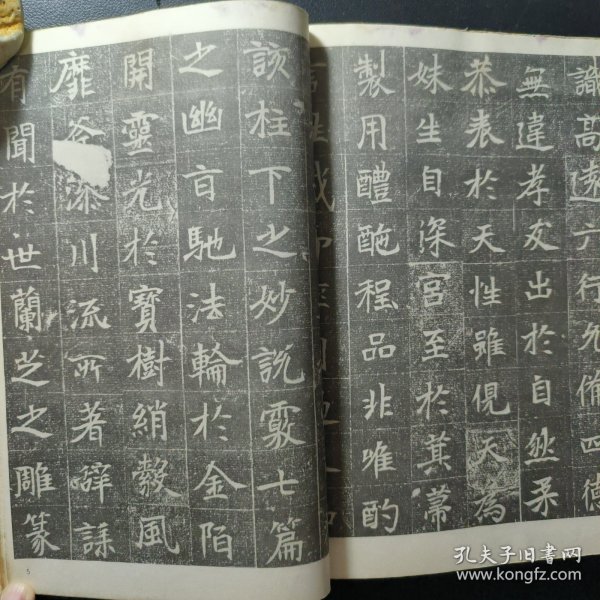 識高遠六行允俻四德
無違孝友出於自然柔
恭表於天性雖俔天為
妹生自深宮至於其冪
製用醴酏程品非唯酌
該柱下之妙說覈七篇
之幽旨馳法輪於金陌
開靈光於寶樹綃縠風
靡川流所著辭
有聞於世蘭芝之雕篆
5
孔夫子旧书网
www.kongfz.com